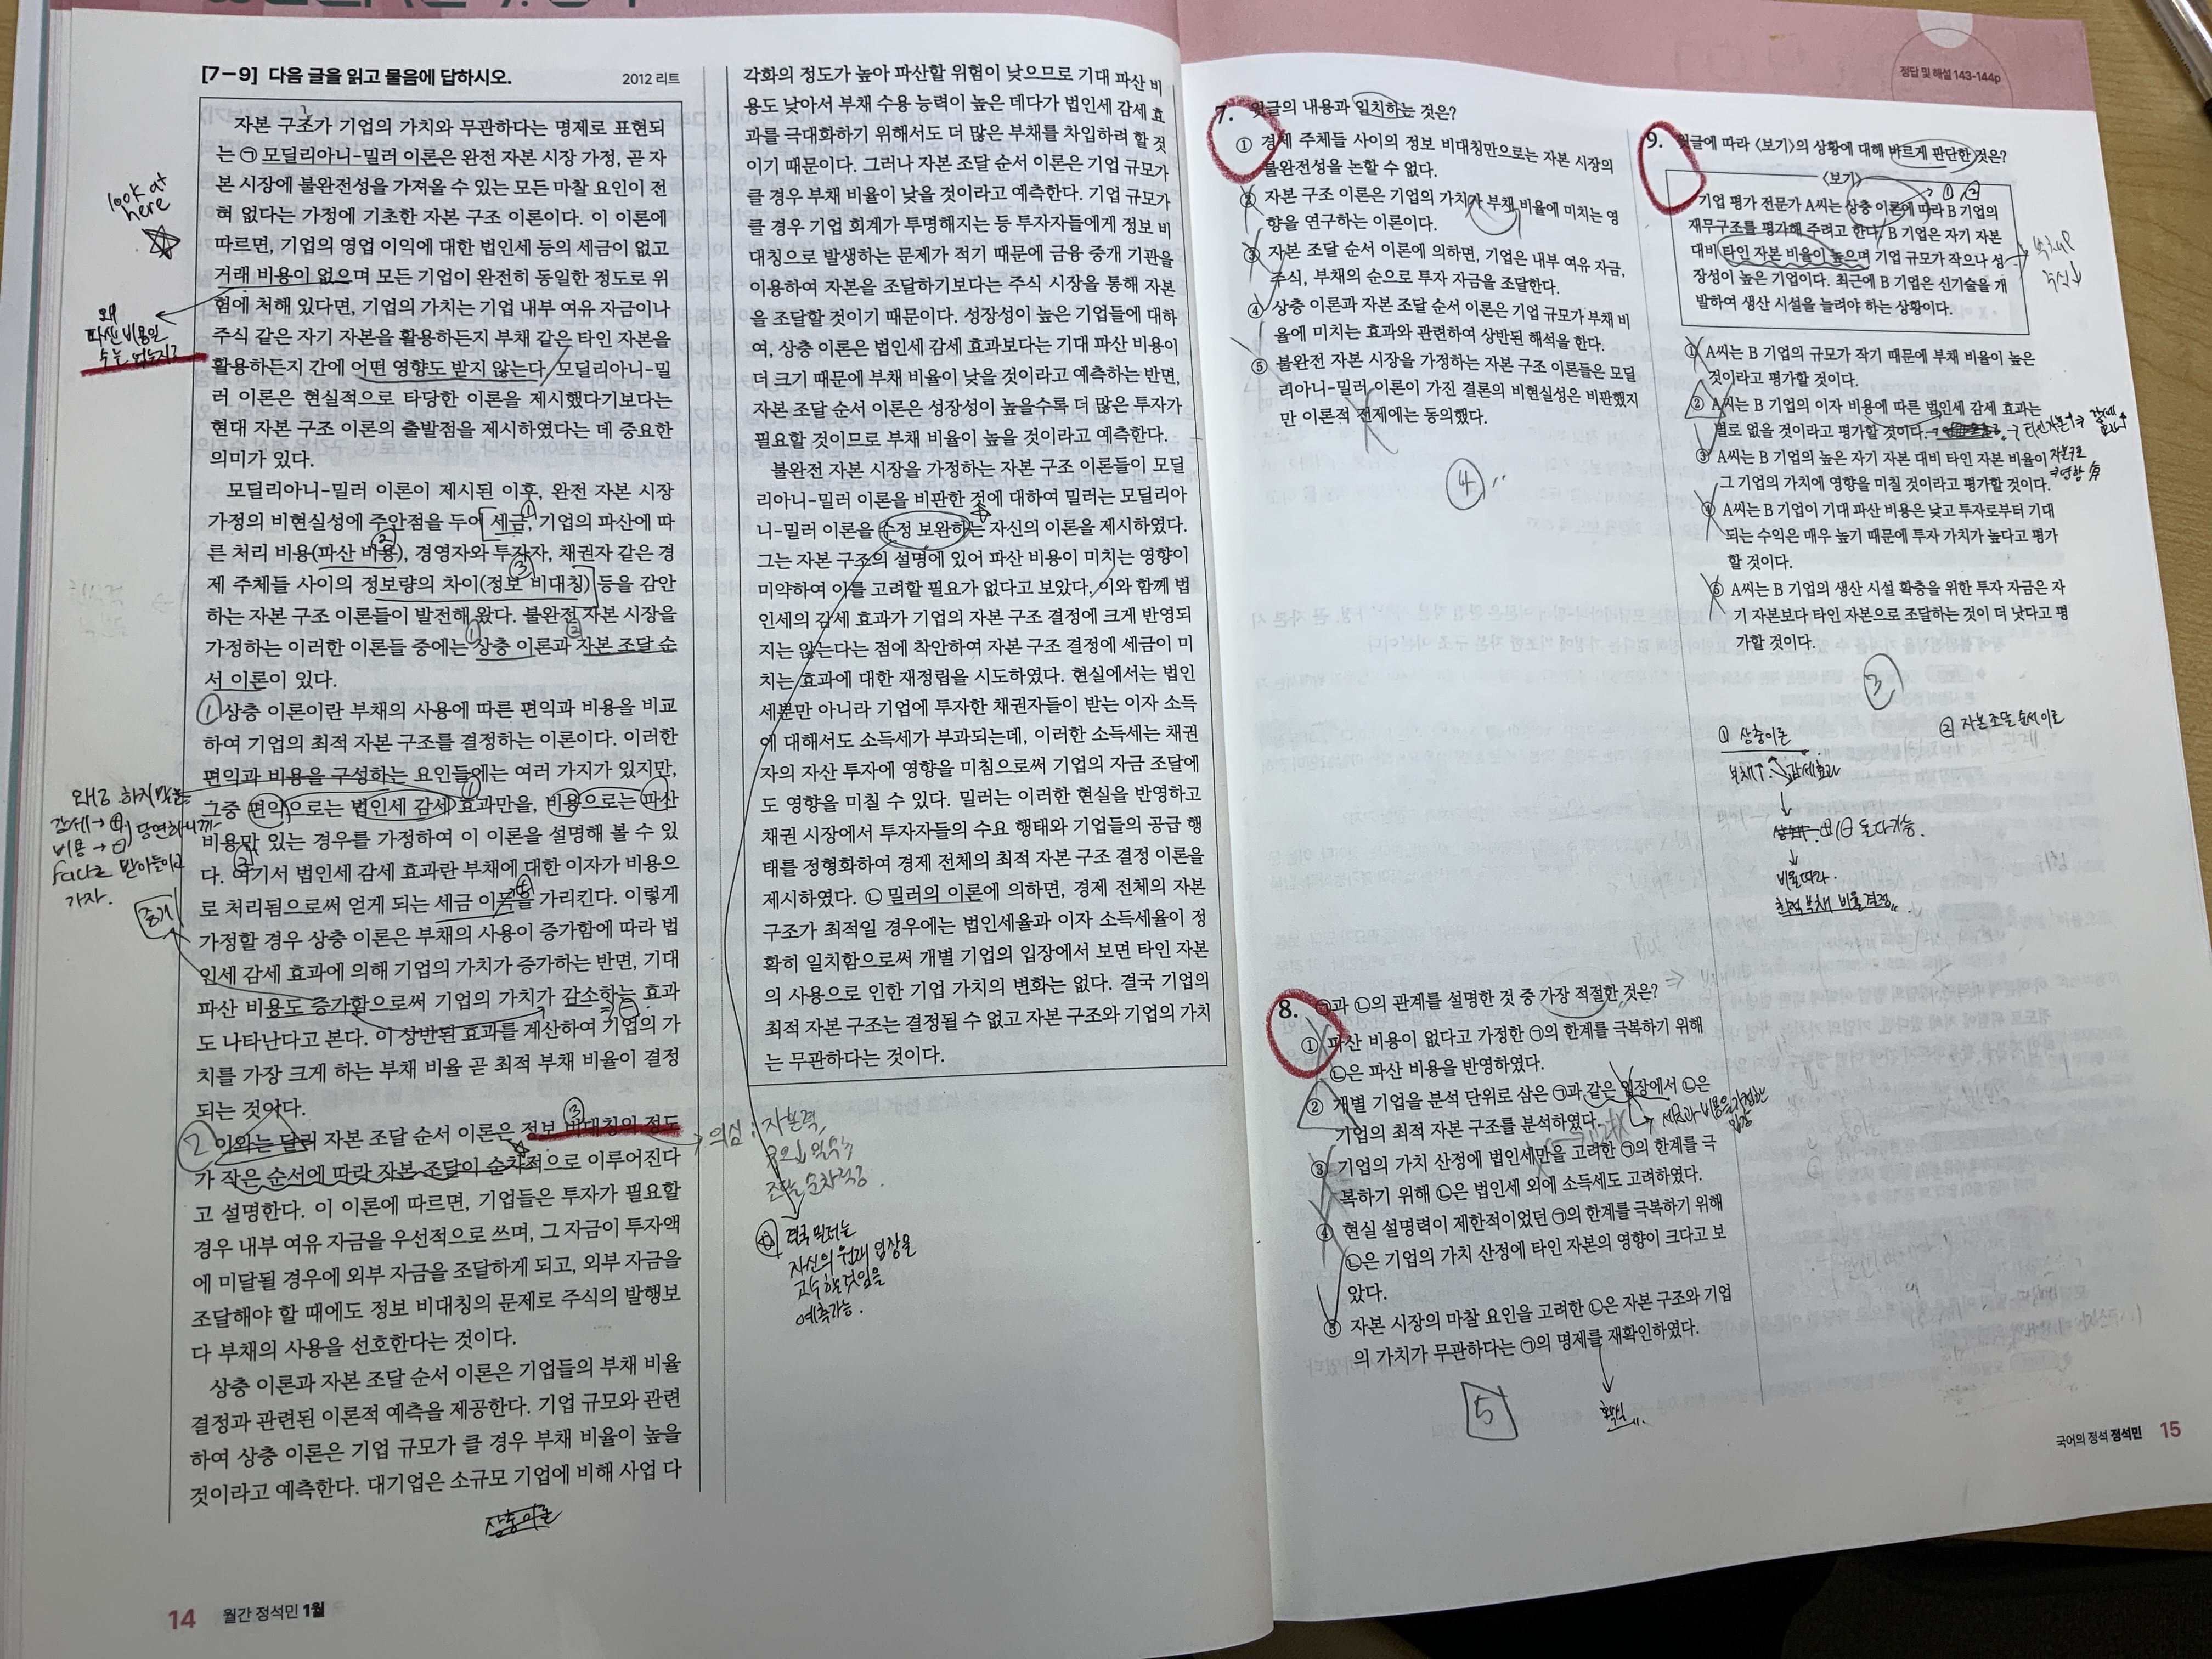 [7－9] 다음 글을 읽고 물음에 답하시오.
2012 리트
자본 구조가 기업의 가치와 무관하다는 명제로 표현되
는 ㉠ 모딜리아니-밀러 이론은 완전 자본 시장 가정, 곧 자
본 시장에 불완전성을 가져올 수 있는 모든 마찰 요인이 전
혀 없다는 가정에 기초한 자본 구조 이론이다. 이 이론에
따르면, 기업의 영업 이익에 대한 법인세 등의 세금이 없고
거래 비용이 없으며 모든 기업이 완전히 동일한 정도로 위
험에 처해 있다면, 기업의 가치는 기업 내부 여유 자금이나
주식 같은 자기 자본을 활용하든지 부채 같은 타인 자본을
활용하든지 간에 어떤 영향도 받지 않는다. 모딜리아니-밀
러 이론은 현실적으로 타당한 이론을 제시했다기보다는
현대 자본 구조 이론의 출발점을 제시하였다는 데 중요한
의미가 있다.
모딜리아니-밀러 이론이 제시된 이후, 완전 자본 시장
가정의 비현실성에 주안점을 두어 세금, 기업의 파산에 따
른 처리 비용(파산 비용), 경영자와 투자자, 채권자 같은 경
제 주체들 사이의 정보량의 차이(정보 비대칭) 등을 감안
하는 자본 구조 이론들이 발전해 왔다. 불완전 자본 시장을
가정하는 이러한 이론들 중에는 상충 이론과 자본 조달 순
서 이론이 있다.
① 상충 이론이란 부채의 사용에 따른 편익과 비용을 비교
하여 기업의 최적 자본 구조를 결정하는 이론이다. 이러한
편익과 비용을 구성하는 요인들에는 여러 가지가 있지만,
그중 편익으로는 법인세 감세 효과만을, 비용으로는 파산
비용만 있는 경우를 가정하여 이 이론을 설명해 볼 수 있
다. 여기서 법인세 감세 효과란 부채에 대한 이자가 비용으
로 처리됨으로써 얻게 되는 세금 이득을 가리킨다. 이렇게
가정할 경우 상충 이론은 부채의 사용이 증가함에 따라 법
인세 감세 효과에 의해 기업의 가치가 증가하는 반면, 기대
파산 비용도 증가함으로써 기업의 가치가 감소하는 효과
도 나타난다고 본다. 이 상반된 효과를 계산하여 기업의 가
치를 가장 크게 하는 부채 비율 곧 최적 부채 비율이 결정
되는 것이다.
② 이와는 달리 자본 조달 순서 이론은 정보 비대칭의 정도
가 작은 순서에 따라 자본 조달이 순차적으로 이루어진다
고 설명한다. 이 이론에 따르면, 기업들은 투자가 필요할
경우 내부 여유 자금을 우선적으로 쓰며, 그 자금이 투자액
에 미달될 경우에 외부 자금을 조달하게 되고, 외부 자금을
조달해야 할 때에도 정보 비대칭의 문제로 주식의 발행보
다 부채의 사용을 선호한다는 것이다.
상충 이론과 자본 조달 순서 이론은 기업들의 부채 비율
결정과 관련된 이론적 예측을 제공한다. 기업 규모와 관련
하여 상충 이론은 기업 규모가 클 경우 부채 비율이 높을
것이라고 예측한다. 대기업은 소규모 기업에 비해 사업 다
look at
here
왜
파산 비용일
수는 없는지?
왜?
감세→⊕
비용→⊖
당연하니까
fact로 받아들이고
가자.
증가
상충이론
14 월간 정석민 1월
각화의 정도가 높아 파산할 위험이 낮으므로 기대 파산 비
용도 낮아서 부채 수용 능력이 높은 데다가 법인세 감세 효
과를 극대화하기 위해서도 더 많은 부채를 차입하려 할 것
이기 때문이다. 그러나 자본 조달 순서 이론은 기업 규모가
클 경우 부채 비율이 낮을 것이라고 예측한다. 기업 규모가
클 경우 기업 회계가 투명해지는 등 투자자들에게 정보 비
대칭으로 발생하는 문제가 적기 때문에 금융 중개 기관을
이용하여 자본을 조달하기보다는 주식 시장을 통해 자본
을 조달할 것이기 때문이다. 성장성이 높은 기업들에 대하
여, 상충 이론은 법인세 감세 효과보다는 기대 파산 비용이
더 크기 때문에 부채 비율이 낮을 것이라고 예측하는 반면,
자본 조달 순서 이론은 성장성이 높을수록 더 많은 투자가
필요할 것이므로 부채 비율이 높을 것이라고 예측한다.
불완전 자본 시장을 가정하는 자본 구조 이론들이 모딜
리아니-밀러 이론을 비판한 것에 대하여 밀러는 모딜리아
니-밀러 이론을 수정 보완하는 자신의 이론을 제시하였다.
그는 자본 구조의 설명에 있어 파산 비용이 미치는 영향이
미약하여 이를 고려할 필요가 없다고 보았다. 이와 함께 법
인세의 감세 효과가 기업의 자본 구조 결정에 크게 반영되
지는 않는다는 점에 착안하여 자본 구조 결정에 세금이 미
치는 효과에 대한 재정립을 시도하였다. 현실에서는 법인
세뿐만 아니라 기업에 투자한 채권자들이 받는 이자 소득
에 대해서도 소득세가 부과되는데, 이러한 소득세는 채권
자의 자산 투자에 영향을 미침으로써 기업의 자금 조달에
도 영향을 미칠 수 있다. 밀러는 이러한 현실을 반영하고
채권 시장에서 투자자들의 수요 행태와 기업들의 공급 행
태를 정형화하여 경제 전체의 최적 자본 구조 결정 이론을
제시하였다. ㉡ 밀러의 이론에 의하면, 경제 전체의 자본
구조가 최적일 경우에는 법인세율과 이자 소득세율이 정
확히 일치함으로써 개별 기업의 입장에서 보면 타인 자본
의 사용으로 인한 기업 가치의 변화는 없다. 결국 기업의
최적 자본 구조는 결정될 수 없고 자본 구조와 기업의 가치
는 무관하다는 것이다.
의심 : 자본력,
조달 순차적?
결국 밀러는
자신의 원래 입장을
고수할 것임을
예측가능.
정답 및 해설 143-144p
7. 윗글의 내용과 일치하는 것은?
① 경제 주체들 사이의 정보 비대칭만으로는 자본 시장의
불완전성을 논할 수 없다.
② 자본 구조 이론은 기업의 가치가 부채 비율에 미치는 영
향을 연구하는 이론이다.
③ 자본 조달 순서 이론에 의하면, 기업은 내부 여유 자금,
주식, 부채의 순으로 투자 자금을 조달한다.
④ 상충 이론과 자본 조달 순서 이론은 기업 규모가 부채 비
율에 미치는 효과와 관련하여 상반된 해석을 한다.
⑤ 불완전 자본 시장을 가정하는 자본 구조 이론들은 모딜
리아니-밀러 이론이 가진 결론의 비현실성은 비판했지
만 이론적 전제에는 동의했다.
④
8. ㉠과 ㉡의 관계를 설명한 것 중 가장 적절한 것은?
① 파산 비용이 없다고 가정한 ㉠의 한계를 극복하기 위해
㉡은 파산 비용을 반영하였다.
② 개별 기업을 분석 단위로 삼은 ㉠과 같은 입장에서 ㉡은
기업의 최적 자본 구조를 분석하였다.
③ 기업의 가치 산정에 법인세만을 고려한 ㉠의 한계를 극
복하기 위해 ㉡은 법인세 외에 소득세도 고려하였다.
④ 현실 설명력이 제한적이었던 ㉠의 한계를 극복하기 위해
㉡은 기업의 가치 산정에 타인 자본의 영향이 크다고 보
았다.
⑤ 자본 시장의 마찰 요인을 고려한 ㉡은 자본 구조와 기업
의 가치가 무관하다는 ㉠의 명제를 재확인하였다.
5
9. 윗글에 따라 〈보기〉의 상황에 대해 바르게 판단한 것은?
〈보기〉
① ②
기업 평가 전문가 A씨는 상충 이론에 따라 B 기업의
재무구조를 평가해 주려고 한다. B 기업은 자기 자본
대비 타인 자본 비율이 높으며 기업 규모가 작으나 성
장성이 높은 기업이다. 최근에 B 기업은 신기술을 개
발하여 생산 시설을 늘려야 하는 상황이다.
주식↓
① A씨는 B 기업의 규모가 작기 때문에 부채 비율이 높은
것이라고 평가할 것이다.
② A씨는 B 기업의 이자 비용에 따른 법인세 감세 효과는
별로 없을 것이라고 평가할 것이다.
③ A씨는 B 기업의 높은 자기 자본 대비 타인 자본 비율이
그 기업의 가치에 영향을 미칠 것이라고 평가할 것이다.
④ A씨는 B 기업이 기대 파산 비용은 낮고 투자로부터 기대
되는 수익은 매우 높기 때문에 투자 가치가 높다고 평가
할 것이다.
⑤ A씨는 B 기업의 생산 시설 확충을 위한 투자 자금은 자
기 자본보다 타인 자본으로 조달하는 것이 더 낫다고 평
가할 것이다.
③
① 상충이론
② 자본 조달 순서 이론
부채↑ 감세효과
⊕/⊖ 둘 다 가능.
비율따라.
최적 부채 비율 결정
국어의 정석 정석민 15